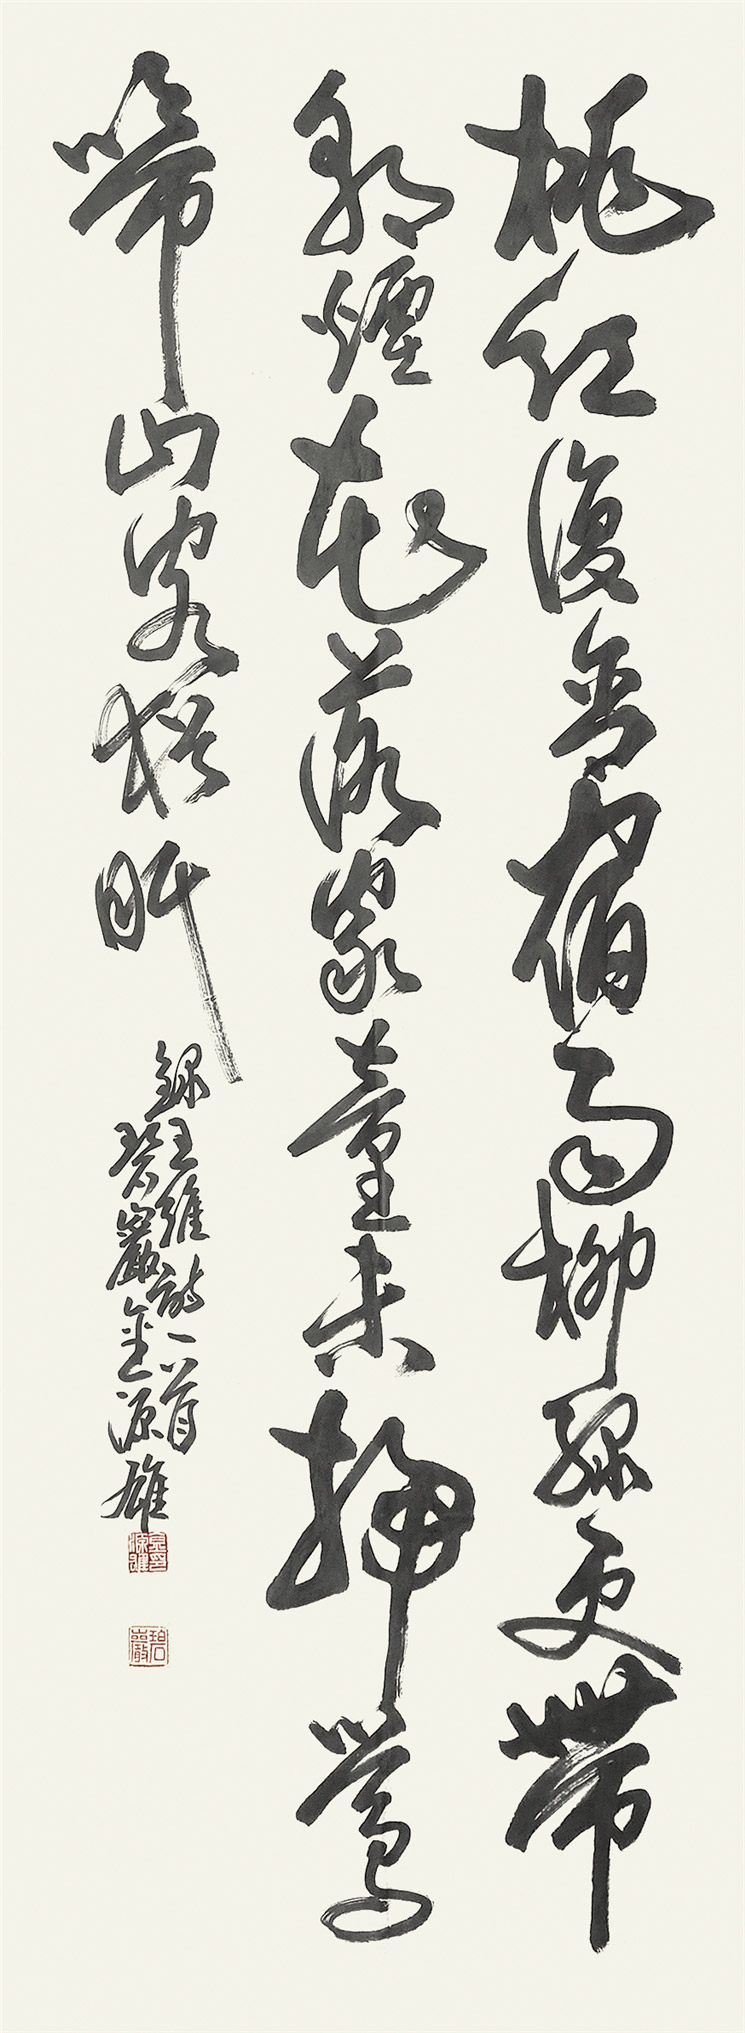 桃紅復含宿雨柳綠更帶
朝煙花落家童未掃鶯
啼山客猶眠
錄王維詩一首
碧巖金源雄
金源雄印
碧巖